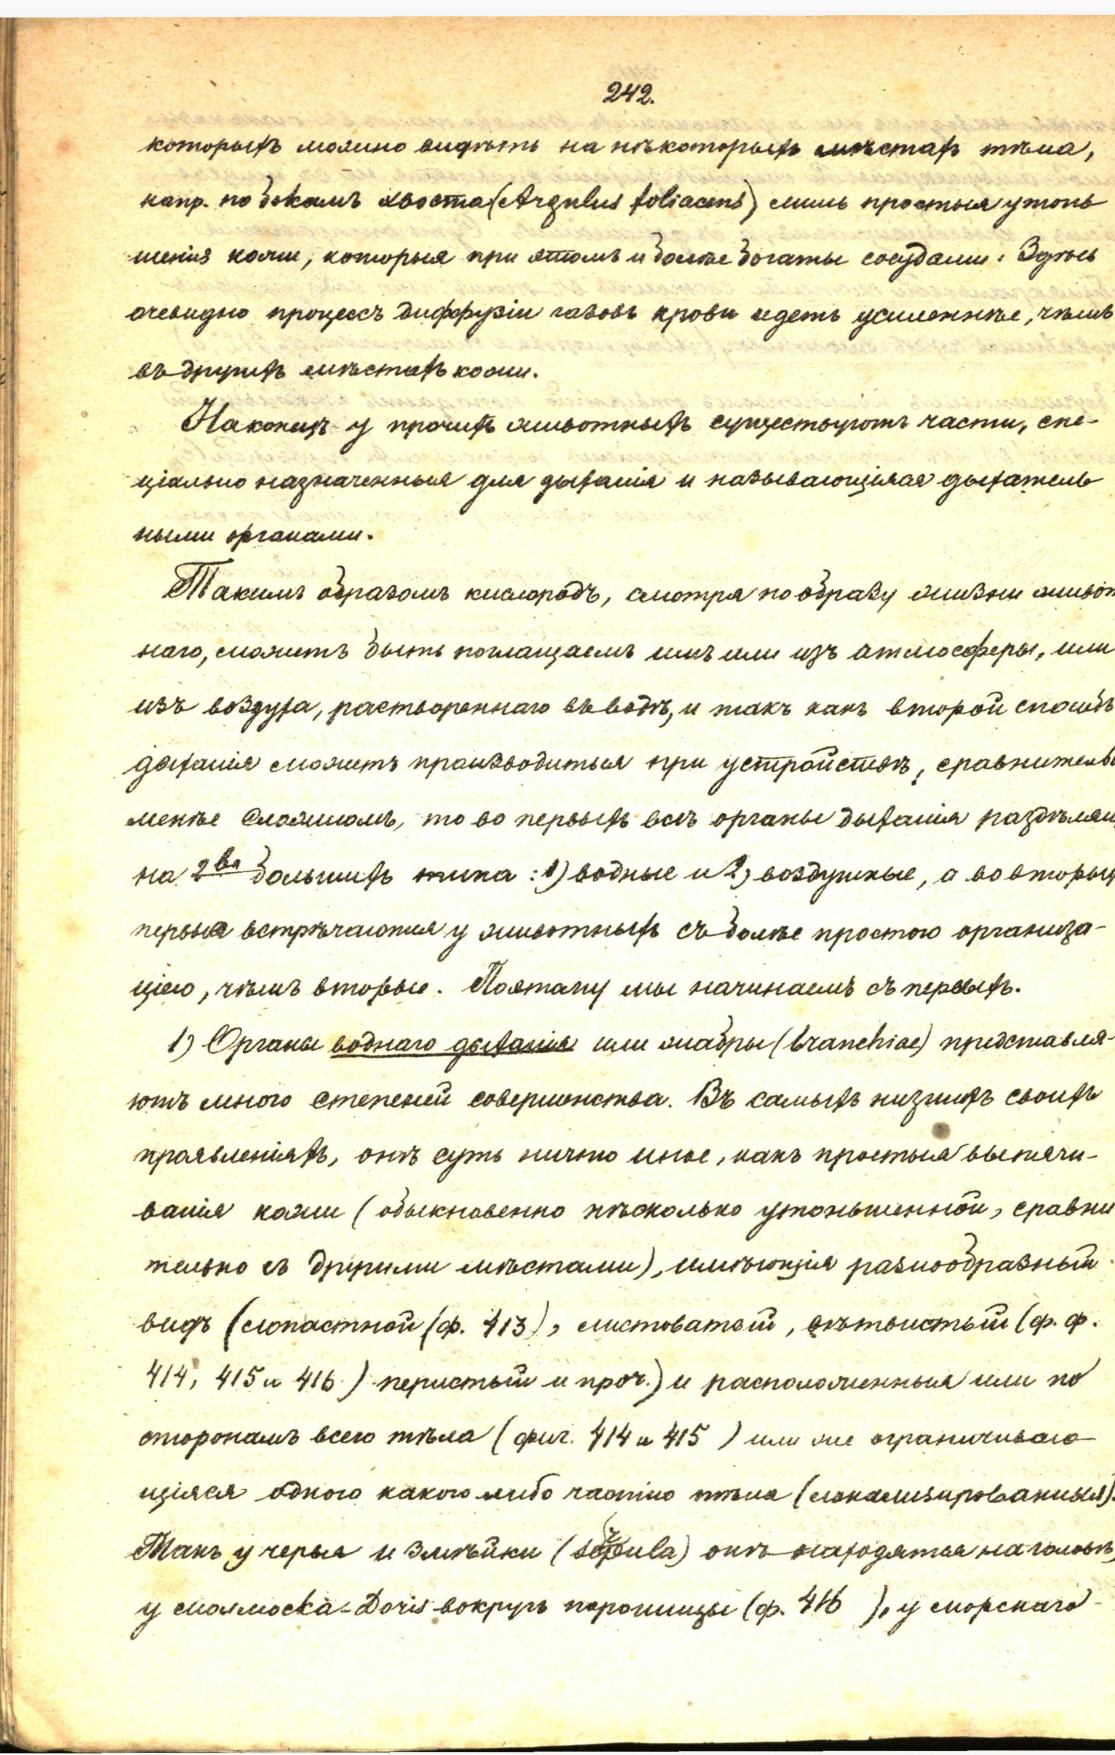 242.
которыхъ можно видѣть на нѣкоторыхъ мѣстахъ тѣла,
напр. по бокамъ хвоста (Argulus foliaceus) лишь простыя утонь
шенія кожи, которыя при этомъ и болѣе богаты сосудами. Здѣсь
очевидно процессъ диффузіи газовъ крови идетъ усиленнѣе, чѣмъ
въ другихъ мѣстахъ кожи.
Наконецъ у прочихъ животныхъ существуютъ части, спе-
ціально назначенныя для дыханія и называющіяся дыхатель
ными органами.
Такимъ образомъ кислородъ, смотря по образу жизни живот
наго, можетъ быть поглащаемъ имъ или изъ атмосферы, или
изъ воздуха, раствореннаго въ водѣ, и такъ какъ второй способъ
дыханія можетъ производиться при устройствѣ, сравнительн
менѣе сложномъ, то во первыхъ всѣ органы дыханія раздѣляю
на 2ва большихъ типа: 1) водные и 2) воздушные, а во вторых
первые встрѣчаются у животныхъ съ болѣе простою организа-
ціею, чѣмъ вторые. Поэтому мы начинаемъ съ первыхъ.
1) Органы воднаго дыханія или жабры (branchiae) представля-
ютъ много степеней совершенства. Въ самыхъ низшихъ своихъ
проявленіяхъ, онѣ суть ничто иное, какъ простыя выпячи-
ванія кожи (обыкновенно нѣсколько утоньшенной, сравни
тельно съ другими мѣстами), имѣющія разнообразный
видъ (лопастной (ф. 413), листоватой, вѣтвистый (ф. ф.
414, 415 и 416) перистый и проч.) и расположенныя или по
сторонамъ всего тѣла (фиг. 414 и 415) или же ограничиваю-
щіяся одною какою либо частію тѣла (локализированныя).
Такъ у червя и змѣйки онѣ находятся на головѣ,
у моллюска-Doris вокругъ порошицы (ф. 416), у морскаго